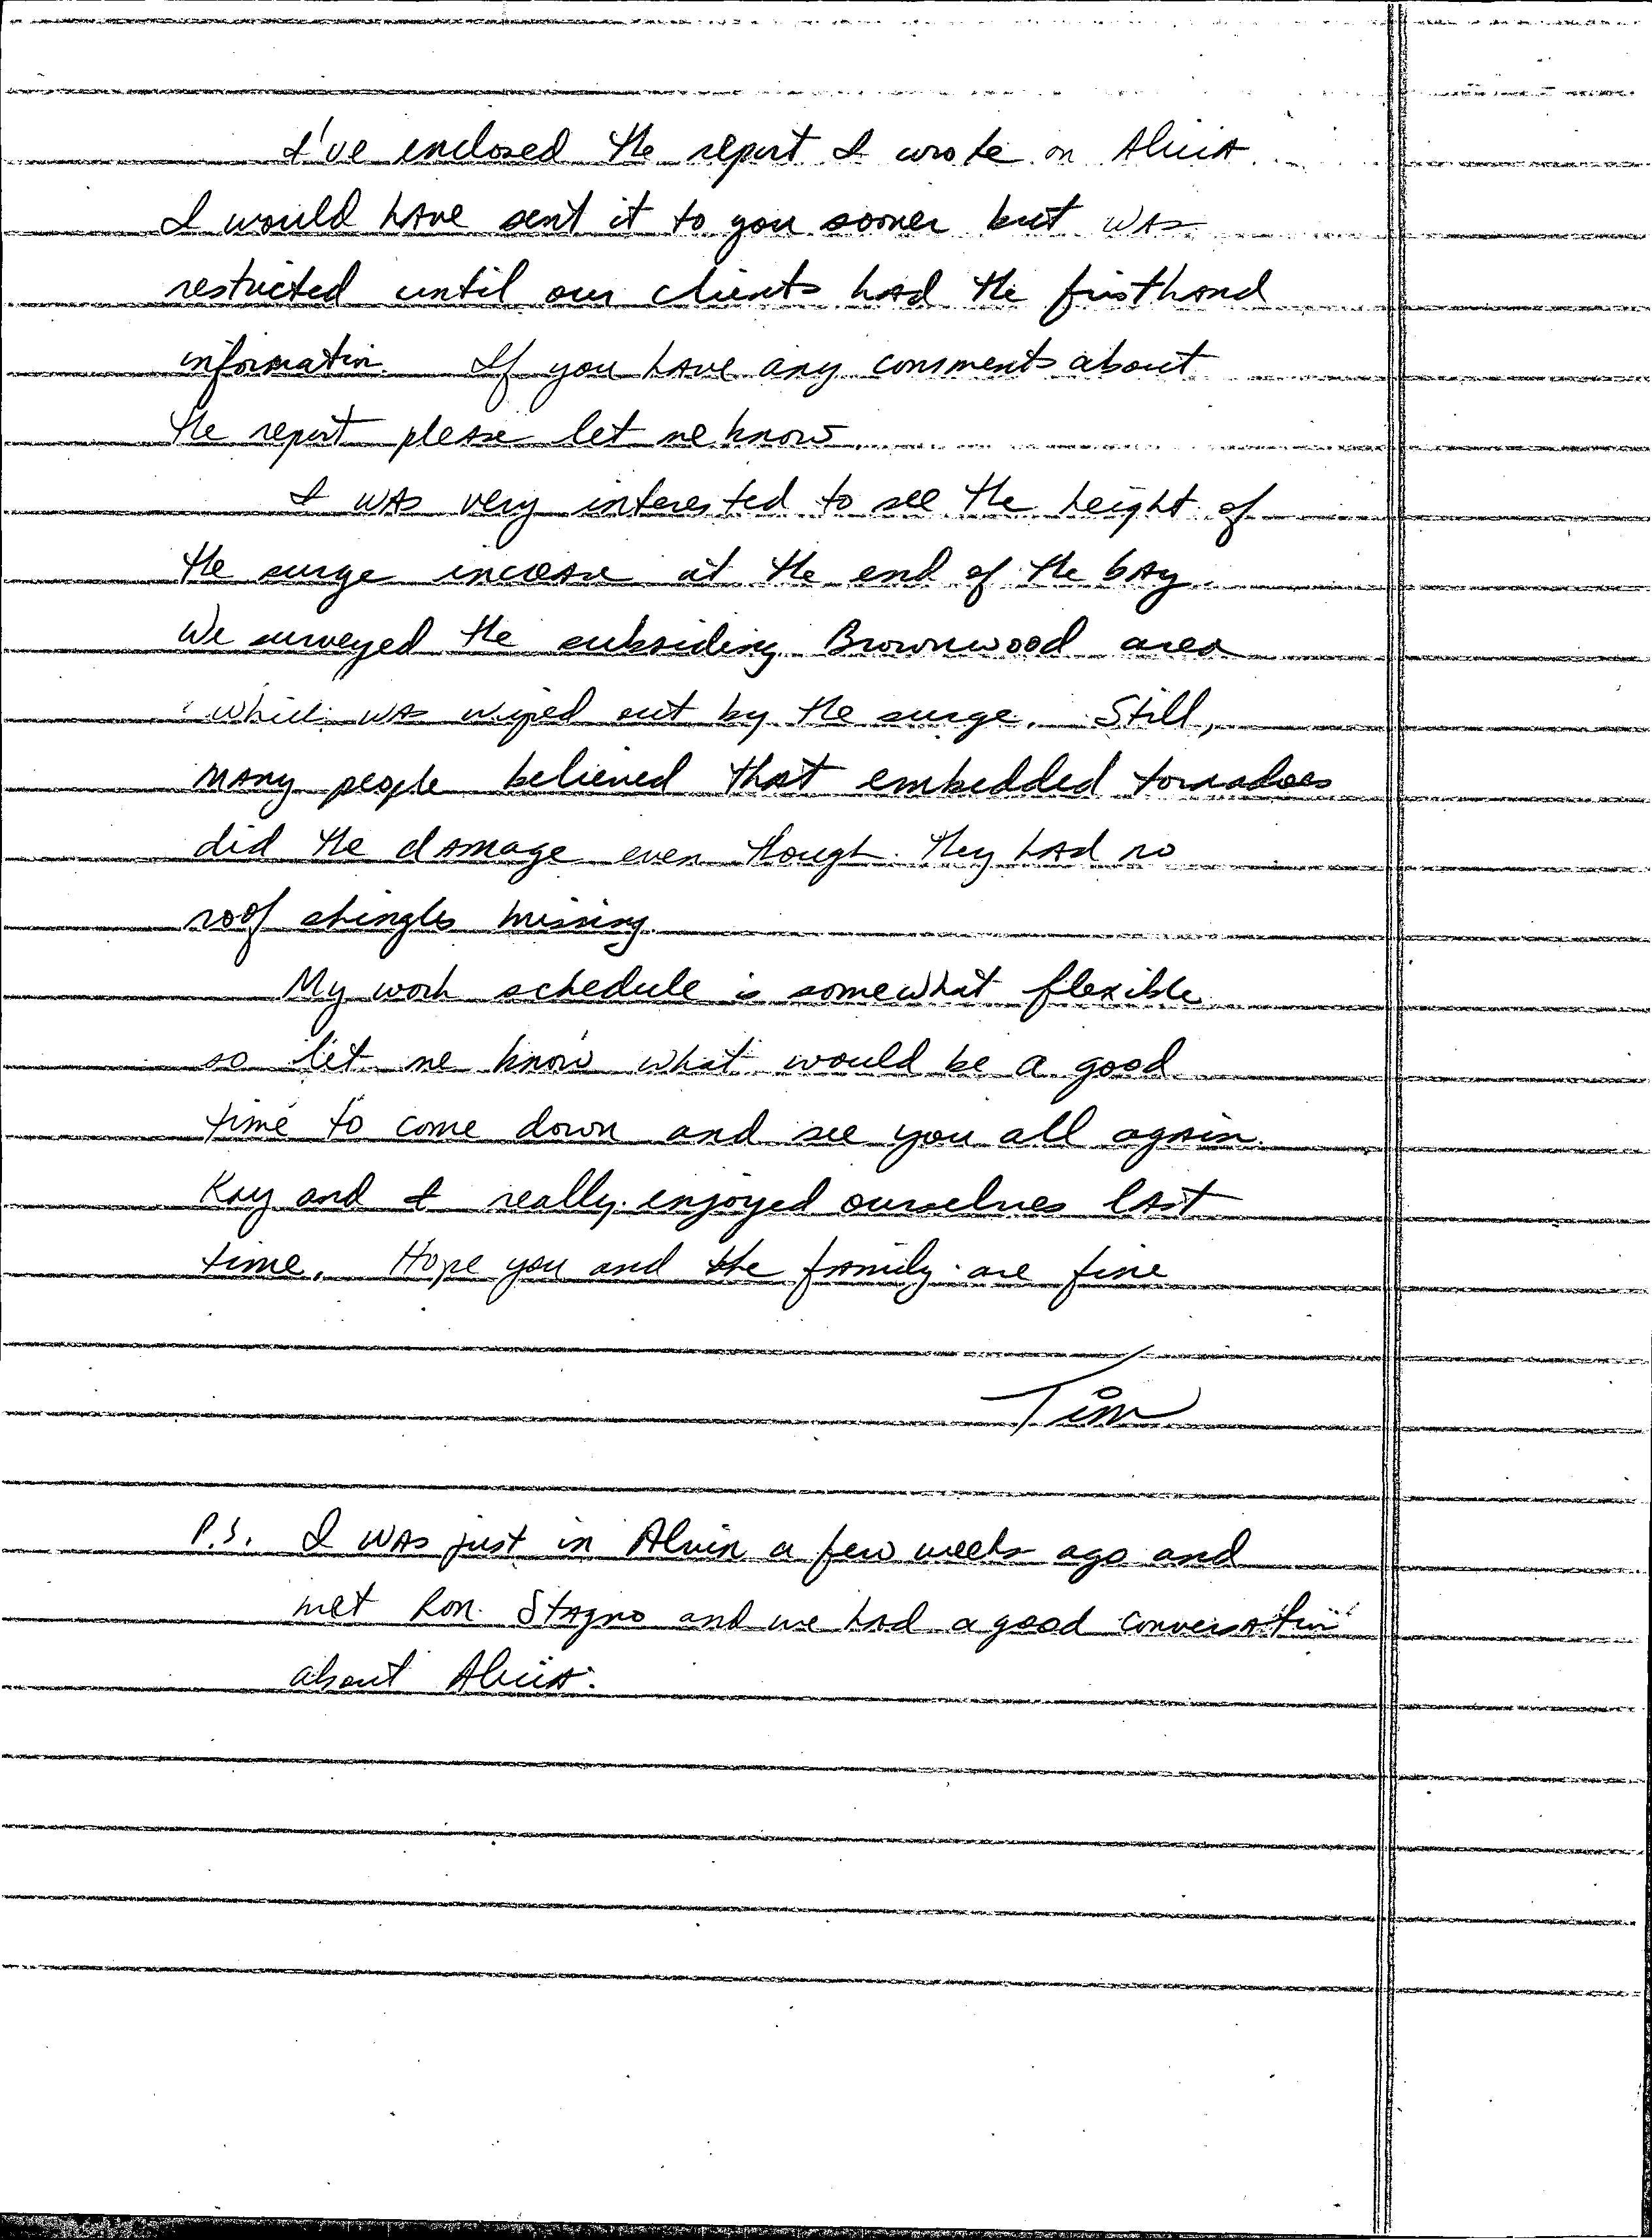 I've enclosed the report I wrote on Alicia.
I would have sent it to you sooner but was
restricted until our clients had the firsthand
information. If you have any comments about
the report please let me know
I was very interested to see the height of
the surge increase at the end of the bay.
We surveyed the subsiding Brownwood area
which was wiped out by the surge. Still,
many people believed that embedded tornadoes
did the damage even though they had no
roof shingles missing.
My work schedule is somewhat flexible
so let me know what would be a good
time to come down and see you all again.
Kay and I really enjoyed ourselves last
time. Hope you and the family are fine
Tim
P.S. I was just in Alvin a few weeks ago and
met Ron Stagno and we had a good conversation
about Alicia.